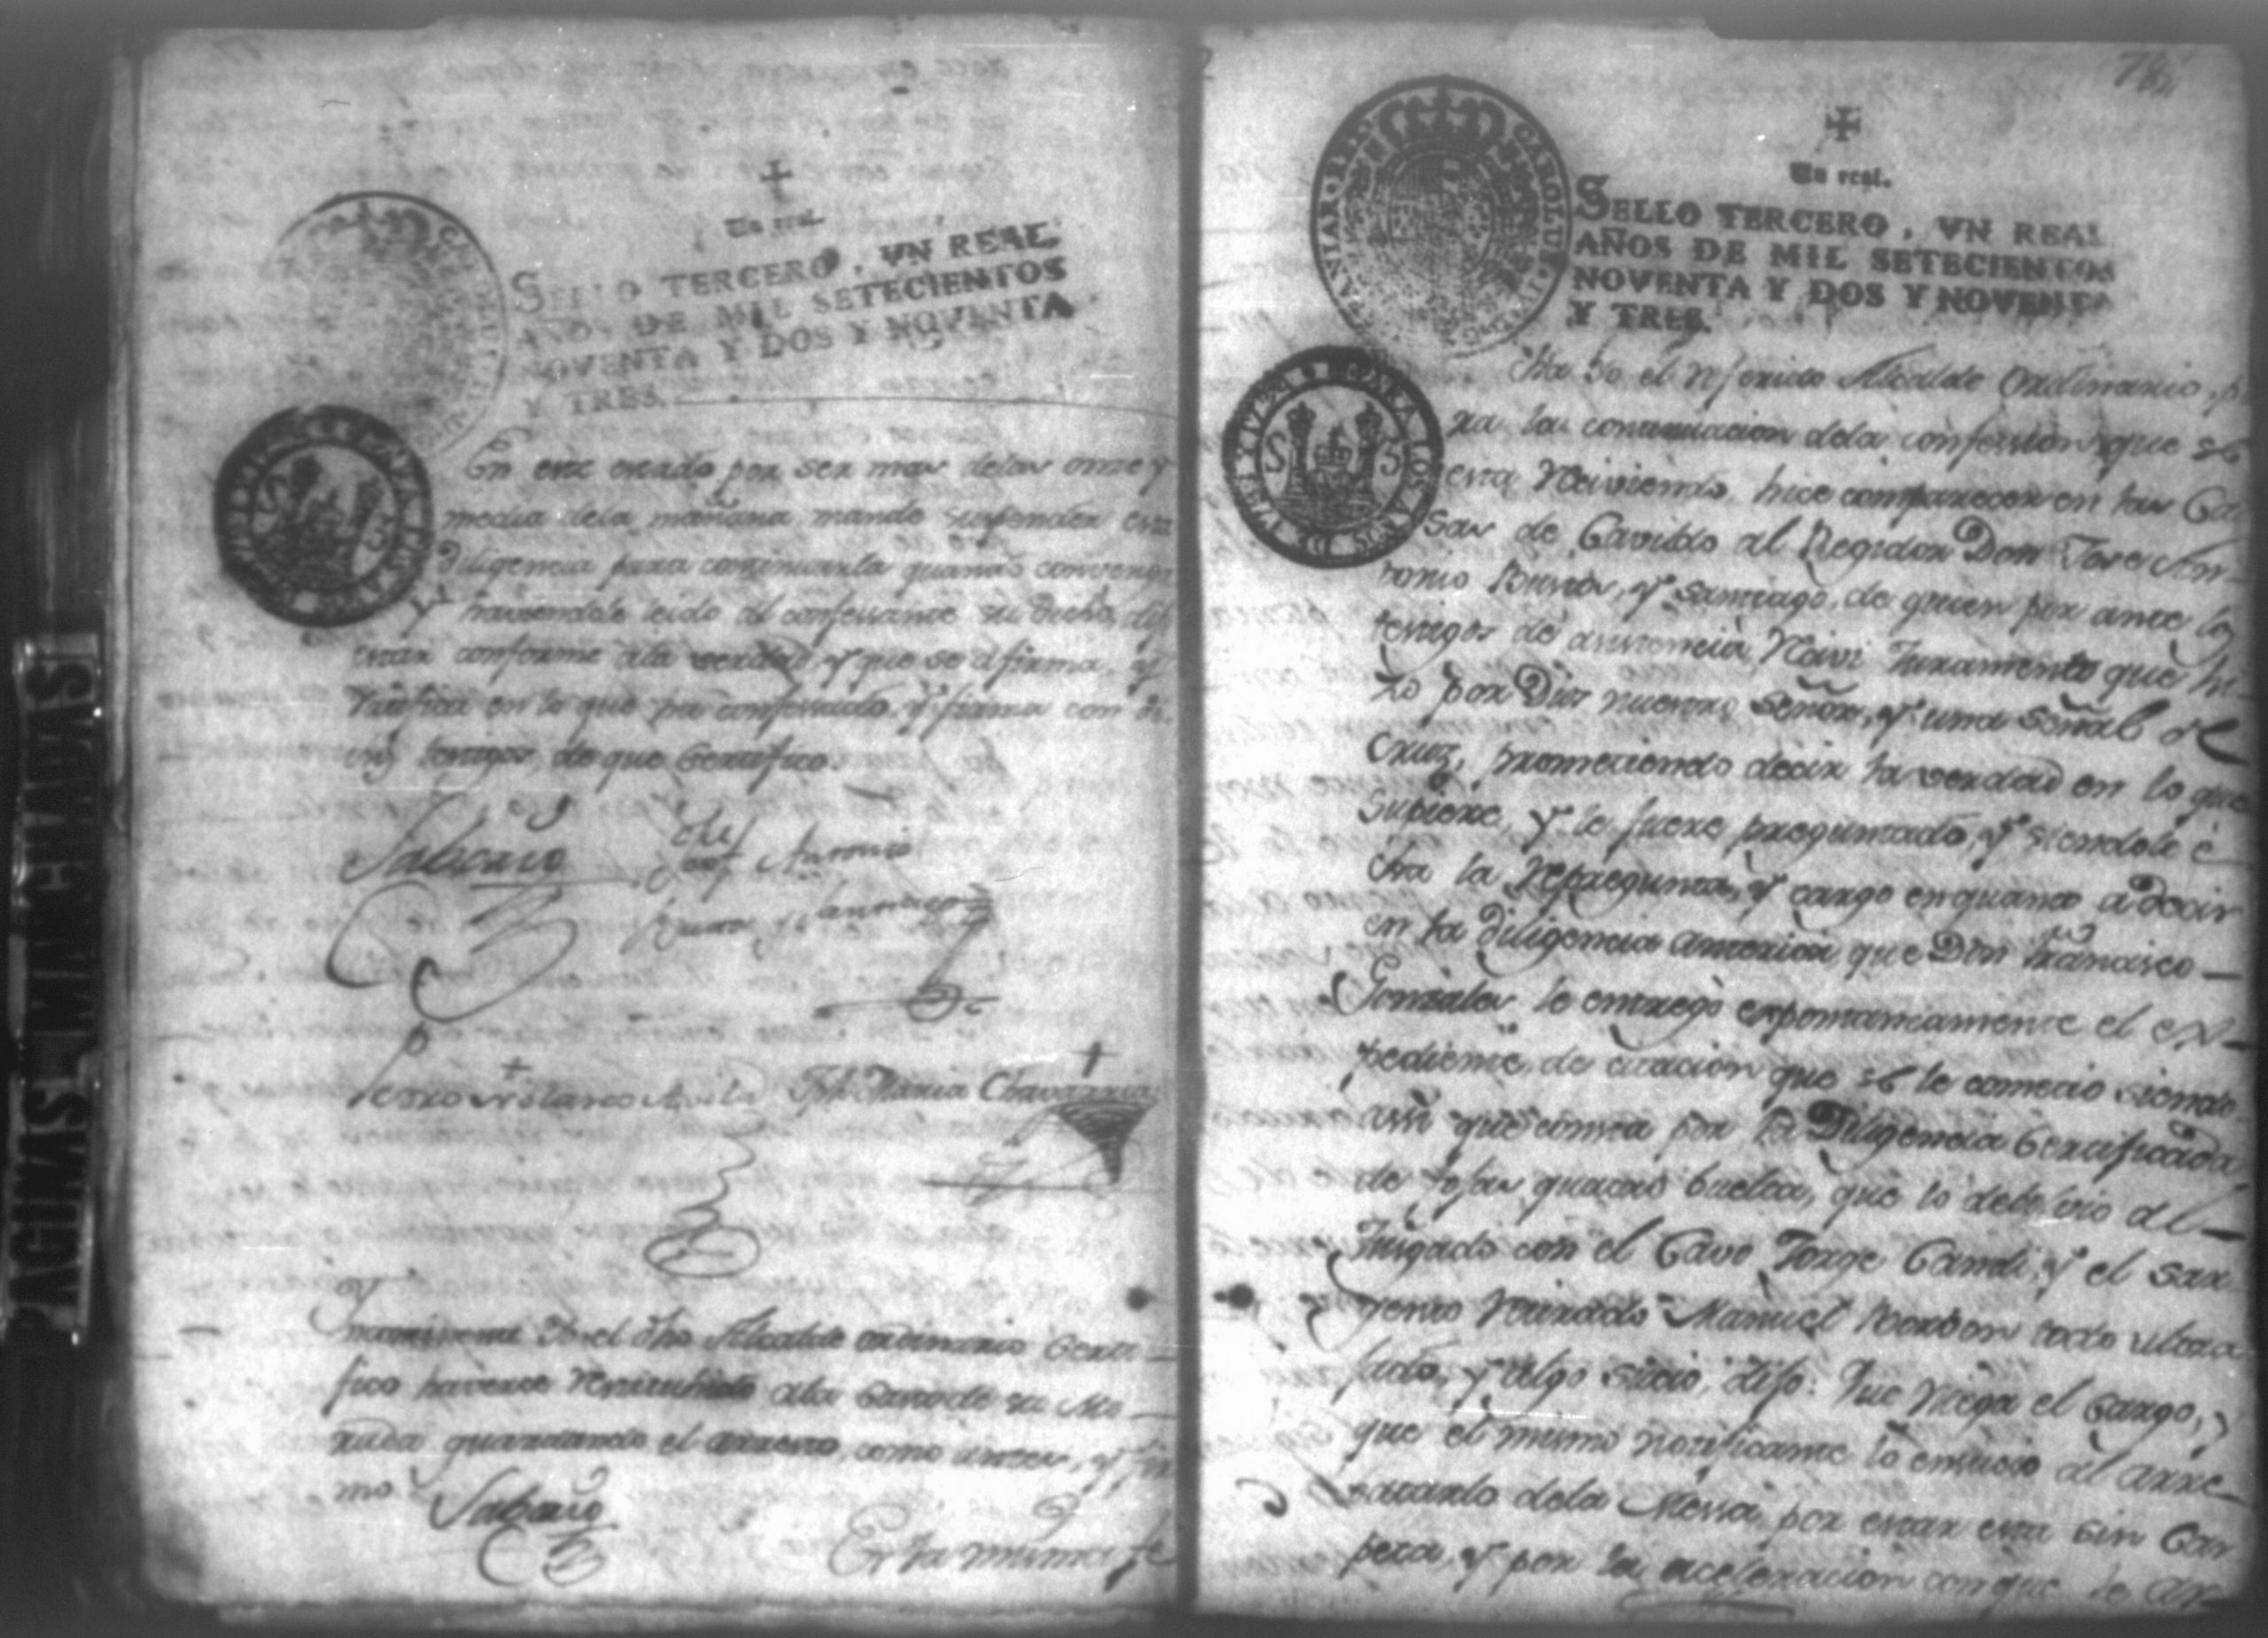 Un real.
SELLO TERCERO, VN REAL
AÑOS DE MIL SETECIENTOS
NOVENTA Y DOS Y NOVENTA
Y TRES.
En este estado por ser mas delas onse y
media dela mañana mandé suspender esta
Diligencia para continuarla quando convenga
Y haviendole leido al confessante su dicho, dijo
estar conforme ala verdad y que se afirma, y
ratifica en lo que ha confessado, y firma con
testigos, de que Certifico.
Jose Antonio
Buros y Santiago
Pedro Nolasco Avila Jph Maria Chavarria
Yncontinenti Yo el dho Alcalde ordinario Certi
fico haverse restituhido ala Casa de su Mo
rada guardando el arresto, como antes, y fir
mo
En la misma fe
78
Un real.
SELLO TERCERO, VN REAL
AÑOS DE MIL SETECIENTOS
NOVENTA Y DOS Y NOVENTA
Y TRES.
CAROLUS
PARA LOS AÑOS DE
S 3
cha Yo el referido Alcalde Ordinario, pa
ra la continuacion dela confession que se
esta reciviendo hice comparecer en las Ca
sas de Cavildo al Regidor Don Jose An
tonio Buros, y Santiago, de quien por ante los
testigos de asistencia recivi Juramento que hi
zo por Dios nuestro Señor, y una Señal de
Cruz, prometiendo decir la verdad en lo que
supiere, y le fuere preguntado, y siendole e
cha la repregunta, y cargo en quanto a decir
en la Diligencia anterior que Don Francisco
Gonzales le entregó expontaneamente el ex
pediente de citacion que se le cometio siendo
assi que consta por la Diligencia Certificada
de fojas quatro buelta, que lo debolvio al
Jusgado con el Cavo Jorge Candi, y el sar
gento retirado Manuel Bordon todo ultra
jado, y algo sucio, dijo: Que niega el cargo,
que el mismo notificante lo ensucio al arre
batarlo dela Messa por estar esta sin Car
peta, y por la aceleracion con que le ar